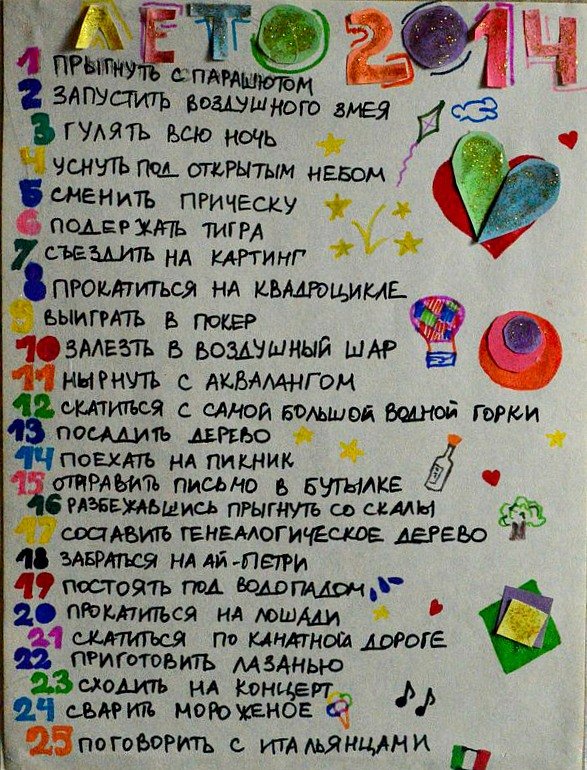 ЛЕТО 2014
1 ПРЫГНУТЬ С ПАРАШЮТОМ
2 ЗАПУСТИТЬ ВОЗДУШНОГО ЗМЕЯ
3 ГУЛЯТЬ ВСЮ НОЧЬ
4 УСНУТЬ ПОД ОТКРЫТЫМ НЕБОМ
5 СМЕНИТЬ ПРИЧЕСКУ
6 ПОДЕРЖАТЬ ТИГРА
7 СЪЕЗДИТЬ НА КАРТИНГ
8 ПРОКАТИТЬСЯ НА КВАДРОЦИКЛЕ
9 ВЫИГРАТЬ В ПОКЕР
10 ЗАЛЕЗТЬ В ВОЗДУШНЫЙ ШАР
11 НЫРНУТЬ С АКВАЛАНГОМ
12 СКАТИТЬСЯ С САМОЙ БОЛЬШОЙ ВОДНОЙ ГОРКИ
13 ПОСАДИТЬ ДЕРЕВО
14 ПОЕХАТЬ НА ПИКНИК
15 ОТПРАВИТЬ ПИСЬМО В БУТЫЛКЕ
16 РАЗБЕЖАВШИСЬ ПРЫГНУТЬ СО СКАЛЫ
17 СОСТАВИТЬ ГЕНЕАЛОГИЧЕСКОЕ ДЕРЕВО
18 ЗАБРАТЬСЯ НА АЙ-ПЕТРИ
19 ПОСТОЯТЬ ПОД ВОДОПАДОМ
20 ПРОКАТИТЬСЯ НА ЛОШАДИ
21 СКАТИТЬСЯ ПО КАНАТНОЙ ДОРОГЕ
22 ПРИГОТОВИТЬ ЛАЗАНЬЮ
23 СХОДИТЬ НА КОНЦЕРТ
24 СВАРИТЬ МОРОЖЕНОЕ
25 ПОГОВОРИТЬ С ИТАЛЬЯНЦАМИ